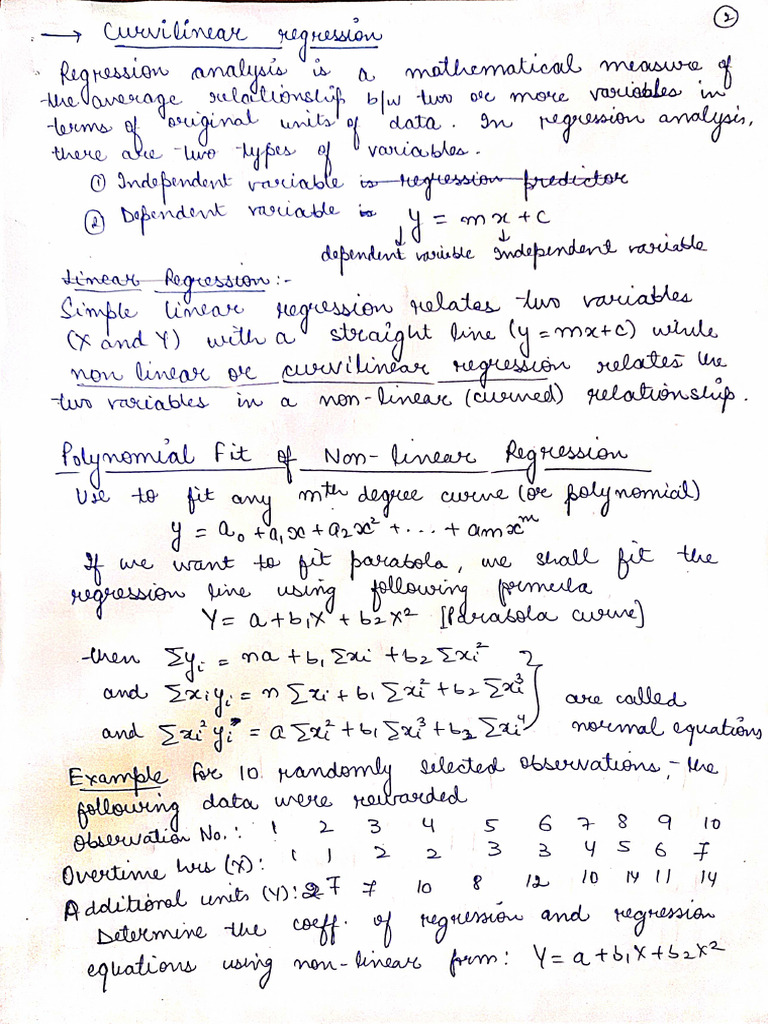 ②
→ Curvilinear regression
Regression analysis is a mathematical measure of
the average relationship b/w two or more variables in
terms of original units of data. In regression analysis,
there are two types of variables.
① Independent variable is regression predictor
② Dependent variable is y = mx + c
dependent variable Independent variable
Linear Regression:-
Simple linear regression relates two variables
(X and Y) with a straight line (y = mx+c) while
non linear or curvilinear regression relates the
two variables in a non-linear (curved) relationship.
Polynomial Fit of Non-linear Regression
Use to fit any mth degree curve (or polynomial)
y = a₀ + a₁x + a₂x² + ... + amxᵐ
If we want to fit parabola, we shall fit the
regression line using following formula
Y = a + b₁X + b₂X² [Parabola curve]
then Σyᵢ = na + b₁ Σxᵢ + b₂ Σxᵢ²
and Σxᵢyᵢ = n Σxᵢ + b₁ Σxᵢ² + b₂ Σxᵢ³ are called
and Σxᵢ² yᵢ = a Σxᵢ² + b₁ Σxᵢ³ + b₂ Σxᵢ⁴ normal equations
Example for 10 randomly selected observations, the
following data were rewarded
Observation No.: 1 2 3 4 5 6 7 8 9 10
Overtime hrs (X): 1 1 2 2 3 3 4 5 6 7
Additional units (Y): 27 7 10 8 12 10 14 11 14
Determine the coeff. of regression and regression
equations using non-linear form: Y = a + b₁X + b₂X²